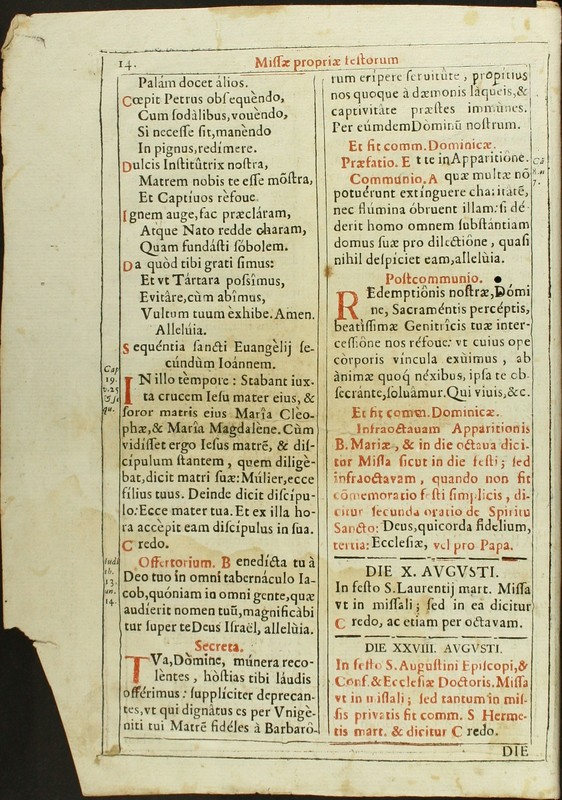 14.
Missæ propriæ festorum
Palám docet álios.
Cœpit Petrus obsequèndo,
Cum sodàlibus, vouèndo,
Si necesse sit, manèndo
In pignus, redímere.
Dulcis Institûtrix nostra,
Matrem nobis te esse mõstra,
Et Captíuos rèfoue.
Ignem auge, fac præcláram,
Atque Nato redde charam,
Quam fundásti sóbolem.
Da quòd tibi grati simus:
Et vt Tártara possîmus,
Evitâre, cùm abîmus,
Vultum tuum èxhibe. Amen.
Allelúia.
Sequéntia sancti Euangèlij se-
cúndùm Ioánnem.
Cap.
19.
v. 25
qu.
IN illo tèmpore: Stabant iux-
ta crucem Iesu mater eius, &
soror matris eius Marîa Cleo-
phæ, & Marîa Magdalène. Cùm
vidísset ergo Iesus matrẽ, & dis-
cípulum stantem, quem diligè-
bat, dicit matri suæ: Múlier, ecce
fílius tuus. Deinde dicit discípu-
lo: Ecce mater tua. Et ex illa ho-
ra accèpit eam discípulus in sua.
Credo.
Iudi
th.
13.
14.
Offertorium. Benedícta tu à
Deo tuo in omni tabernáculo Ia-
cob, quóniam in omni gente, quæ
audíerit nomen tuũ, magnificábi
tur super te Deus Israël, allelùia.
Secreta.
TVa, Dòmine, múnera reco-
lèntes, hòstias tibi láudis
offérimus: supplíciter deprecan-
tes, vt qui dignâtus es per Vnigè-
niti tui Matrẽ fidéles à Barbarò-
rum erípere seruitûte, propítius
nos quoque à dæmonis láqueis, &
captivitâte præstes immúnes.
Per eúmdem Dòminũ nostrum.
Et fit comm. Dominicæ.
Præfatio. Et te in Apparitiône.
Communio. Aquæ multæ nõ
Cã
8.
7.
potuérunt extínguere charitâtẽ,
nec flúmina óbruent illam: si dé-
derit homo omnem substántiam
domus suæ pro dilectiône, quasi
nihil despíciet eam, allelùia.
Postcommunio.
REdemptiônis nostræ, Dómi
ne, Sacraméntis percéptis,
beatissîmæ Genitrîcis tuæ inter-
cessiône nos réfoue: vt cuius ope
còrporis víncula exúimus, ab
ànimæ quoq; néxibus, ipsa te ob-
secrânte, soluâmur. Qui viuis, &c.
Et fit comm. Dominicæ.
Infraoctauam Apparitionis
B. Mariæ, & in die octaua dici-
tur Missa sicut in die festi; sed
infraoctavam, quando non fit
cõmemoratio festi simplicis, di-
citur secunda oratio de Spiritu
Sancto: Deus, qui corda fidelium,
tertia: Ecclesiæ, vel pro Papa.
DIE X. AVGVSTI.
In festo S. Laurentij mart. Missa
vt in missali; sed in ea dicitur
Credo, ac etiam per octavam.
DIE XXVIII. AVGVSTI.
In festo S. Augustini Episcopi, &
Conf. & Ecclesiæ Doctoris. Missa
vt in missali; sed tantum in mis-
sis privatis fit comm. S Herme-
tis mart. & dicitur Credo.
DIE